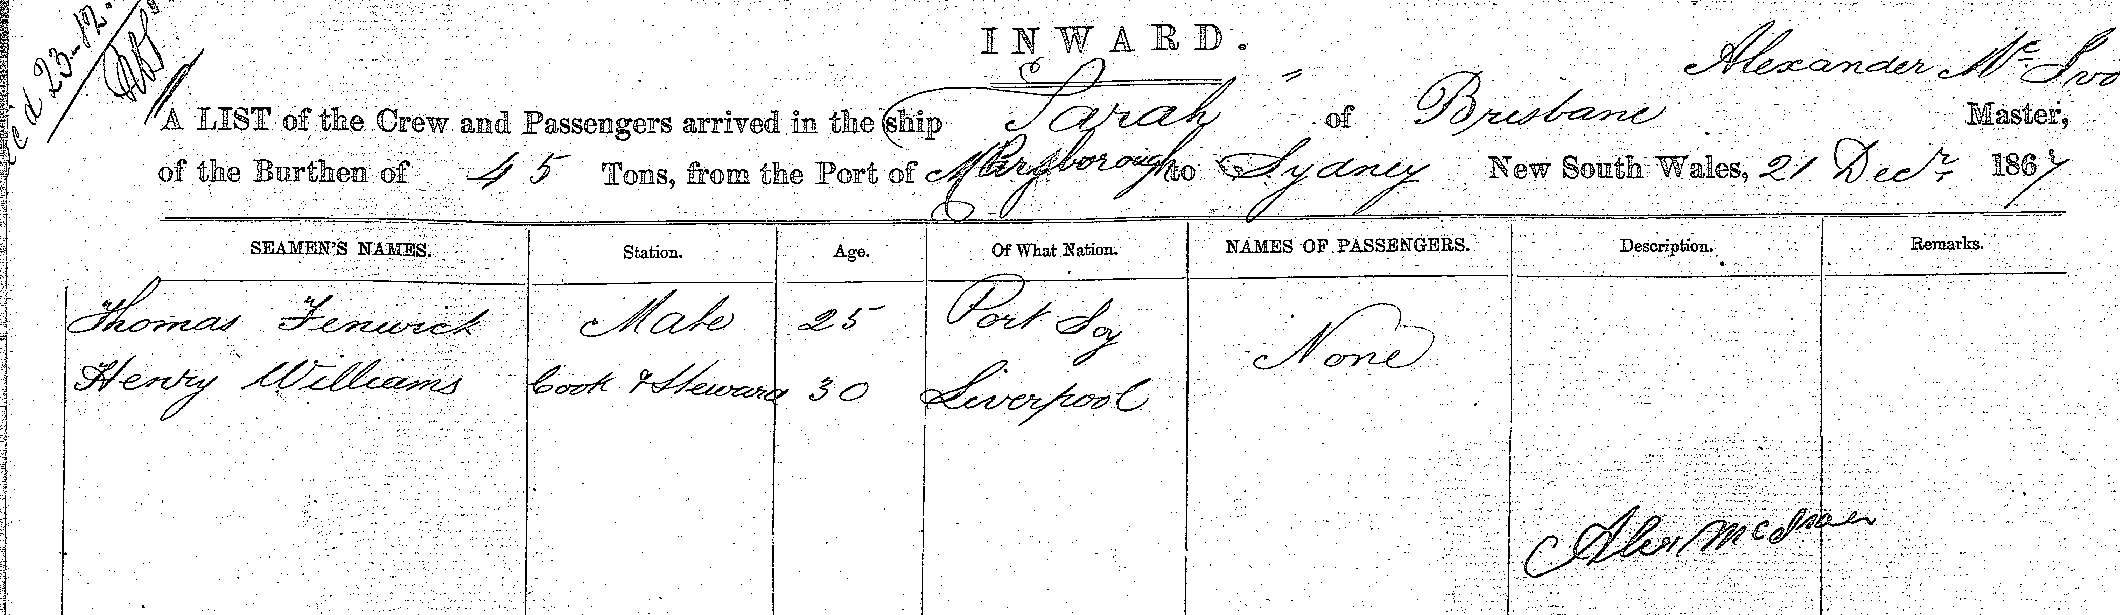 23-12
INWARD.
Alexander Mc Ivo
A LIST of the Crew and Passengers arrived in the ship Sarah " of Brisbane Master,
of the Burthen of 45 Tons, from the Port of Maryborough to Sydney New South Wales, 21 Decr. 1867
SEAMEN'S NAMES. Station. Age. Of What Nation. NAMES OF PASSENGERS. Description. Remarks.
Thomas Fenwick Mate 25 Port Soy None
Henry Williams Cook & Steward 30 Liverpool
Alex